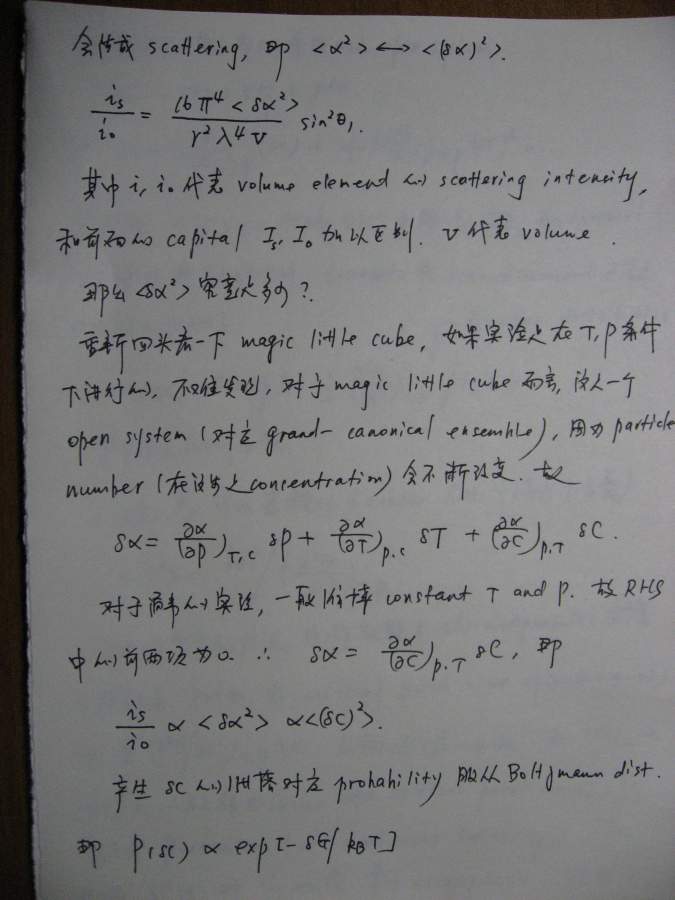 会造成 scattering, 即 <α²> ↔ <(δα)²>.
is/i₀ = 16π⁴<δα²>/r²λ⁴v sin²θ₁.
其中 i, i₀ 代表 volume element 的 scattering intensity,
和前面的 capital Is, I₀ 加以区别. v 代表 volume.
那么 <δα²> 究竟是多少?
重新回头看一下 magic little cube, 如果实验是在 T, P 条件
下进行的, 不难发现, 对于 magic little cube 而言, 这是一个
open system (对应 grand-canonical ensemble), 因为 particle
number (在这里是 concentration) 会不断改变. 故
δα = (∂α/∂p)T,C δp + (∂α/∂T)p,C δT + (∂α/∂C)p,T δC.
对于通常的实验, 一般保持 constant T and P. 故 RHS
中的前两项为0. ∴ δα = (∂α/∂C)p,T δC, 即
is/i₀ ∝ <δα²> ∝ <(δC)²>.
产生 δC 的涨落对应 probability 服从 Boltzmann dist.
即 P(δC) ∝ exp[-δG/kBT]